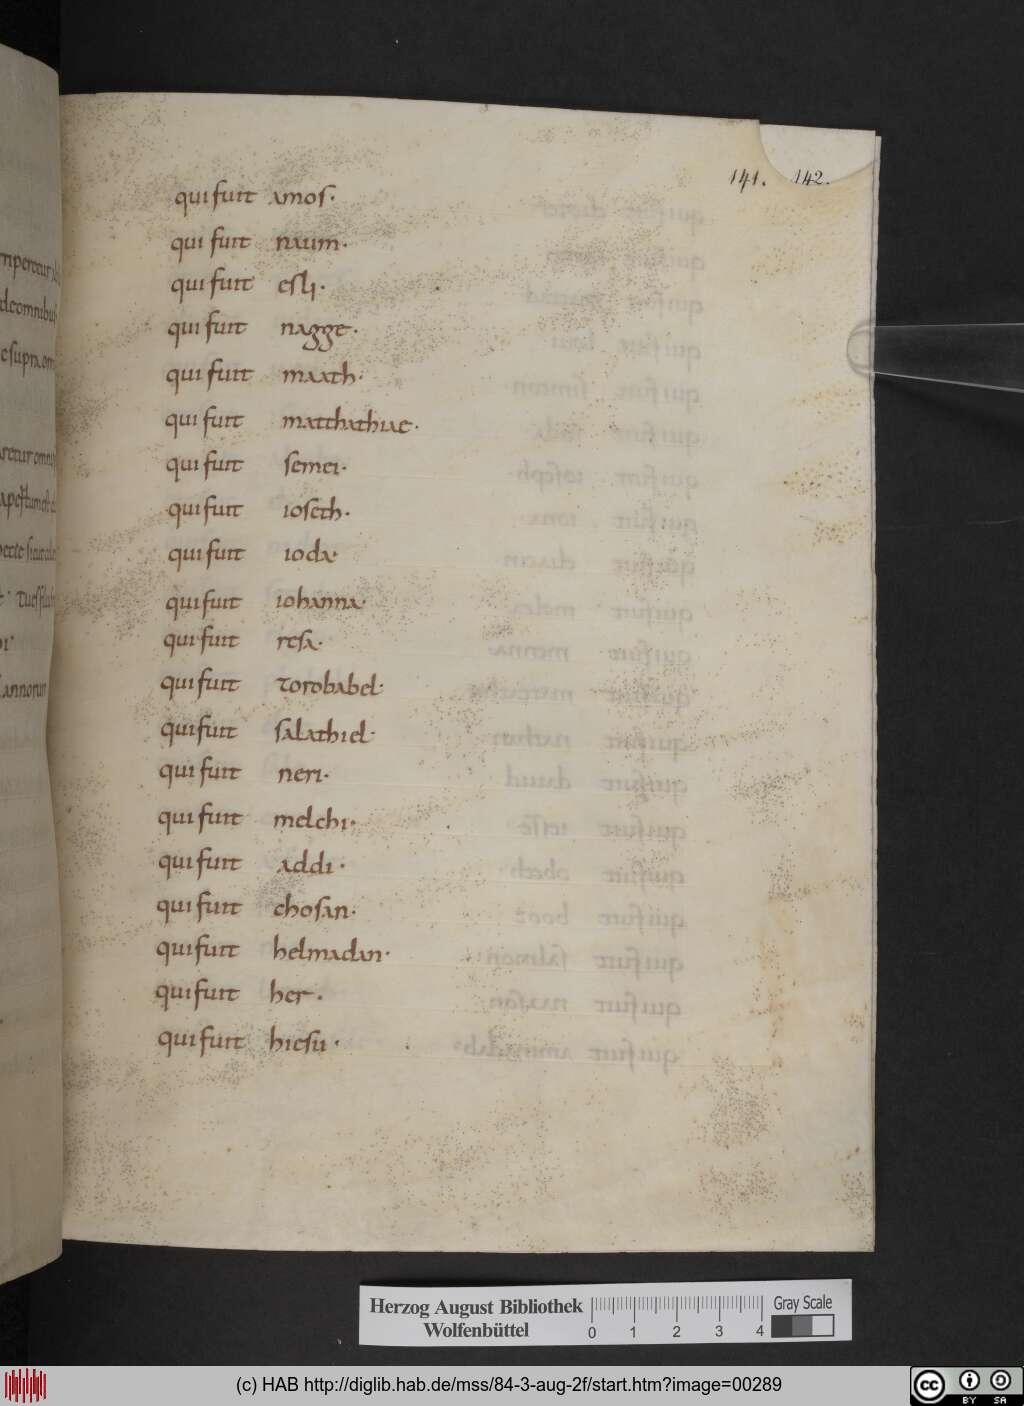 141. 142.
qui fuit amos·
qui fuit naum·
qui fuit esli·
qui fuit nagge·
qui fuit maath·
qui fuit matthathiae·
qui fuit semei·
qui fuit ioseth·
qui fuit ioda·
qui fuit iohanna·
qui fuit resa·
qui fuit zorobabel·
qui fuit salathiel·
qui fuit neri·
qui fuit melchi·
qui fuit addi·
qui fuit chosan·
qui fuit helmadan·
qui fuit her·
qui fuit hiesu·
Herzog August Bibliothek
Wolfenbüttel
0 1 2 3 4
Gray Scale
(c) HAB http://diglib.hab.de/mss/84-3-aug-2f/start.htm?image=00289
cc BY SA